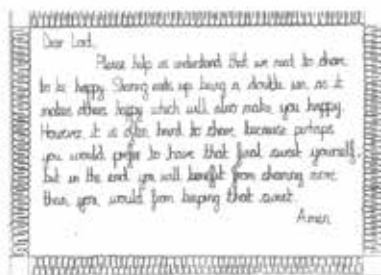 Dear Lord,
Please help us understand that we need to share
to be happy. Sharing ends up being a double win as it
makes others happy which will also make you happy.
However it is often hard to share because perhaps
you would prefer to have that final sweet yourself,
but in the end you will benefit from sharing more
than you would from keeping that sweet.
Amen